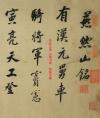 燕然山銘
有漢元舅車
騎將軍竇憲
寅亮天工登